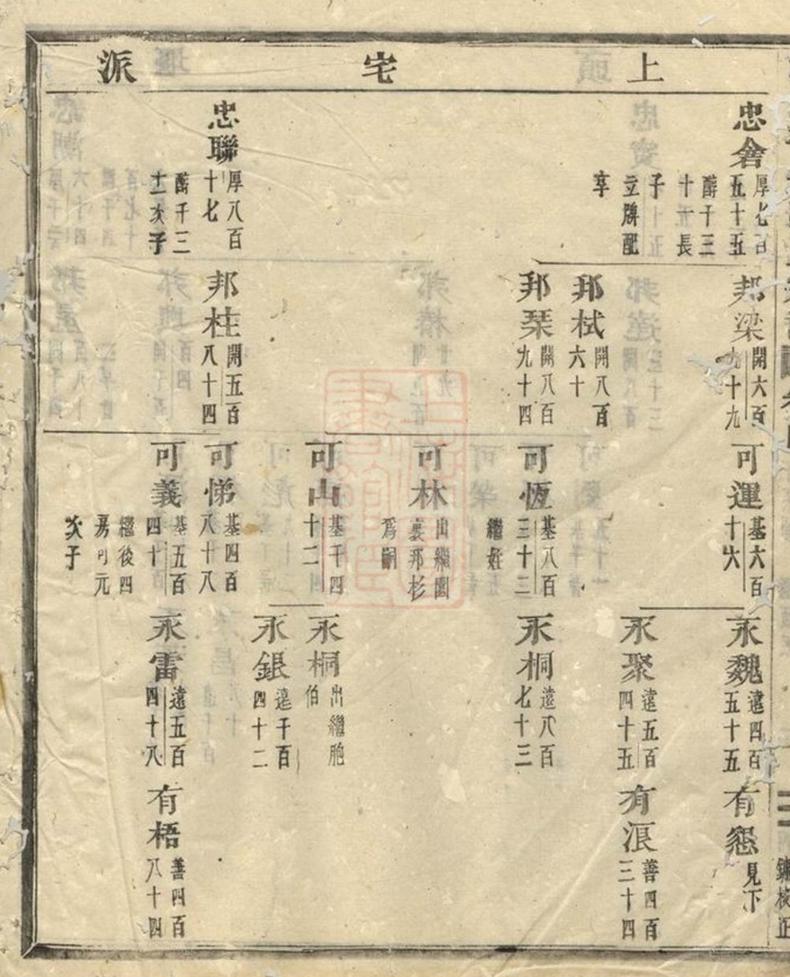 上宅派
忠舍
厚七百
五十五
酹千三
十一長
子
立牌配
享
忠聯
厚八百
十七
酹千三
十二次子
邦梁
開六百
九十九
邦栻
開八百
六十
邦琹
開八百
九十四
邦柱
開五百
八十四
可運
基六百
十六
可恆
基八百
三十三
繼姪
可林
出繼園
裏邦杉
爲嗣
可山
基千四
十二
可悌
基四百
八十八
可義
基五百
四十
繼後四
房可元
次子
永魏
遠四百
五十五
永聚
遠五百
四十五
永桐
遠八百
七十三
永桐
出繼胞
伯
永銀
遠千百
四十二
永雷
遠五百
四十八
有慇
見下
有浪
善四百
三十四
有梧
善四百
八十四